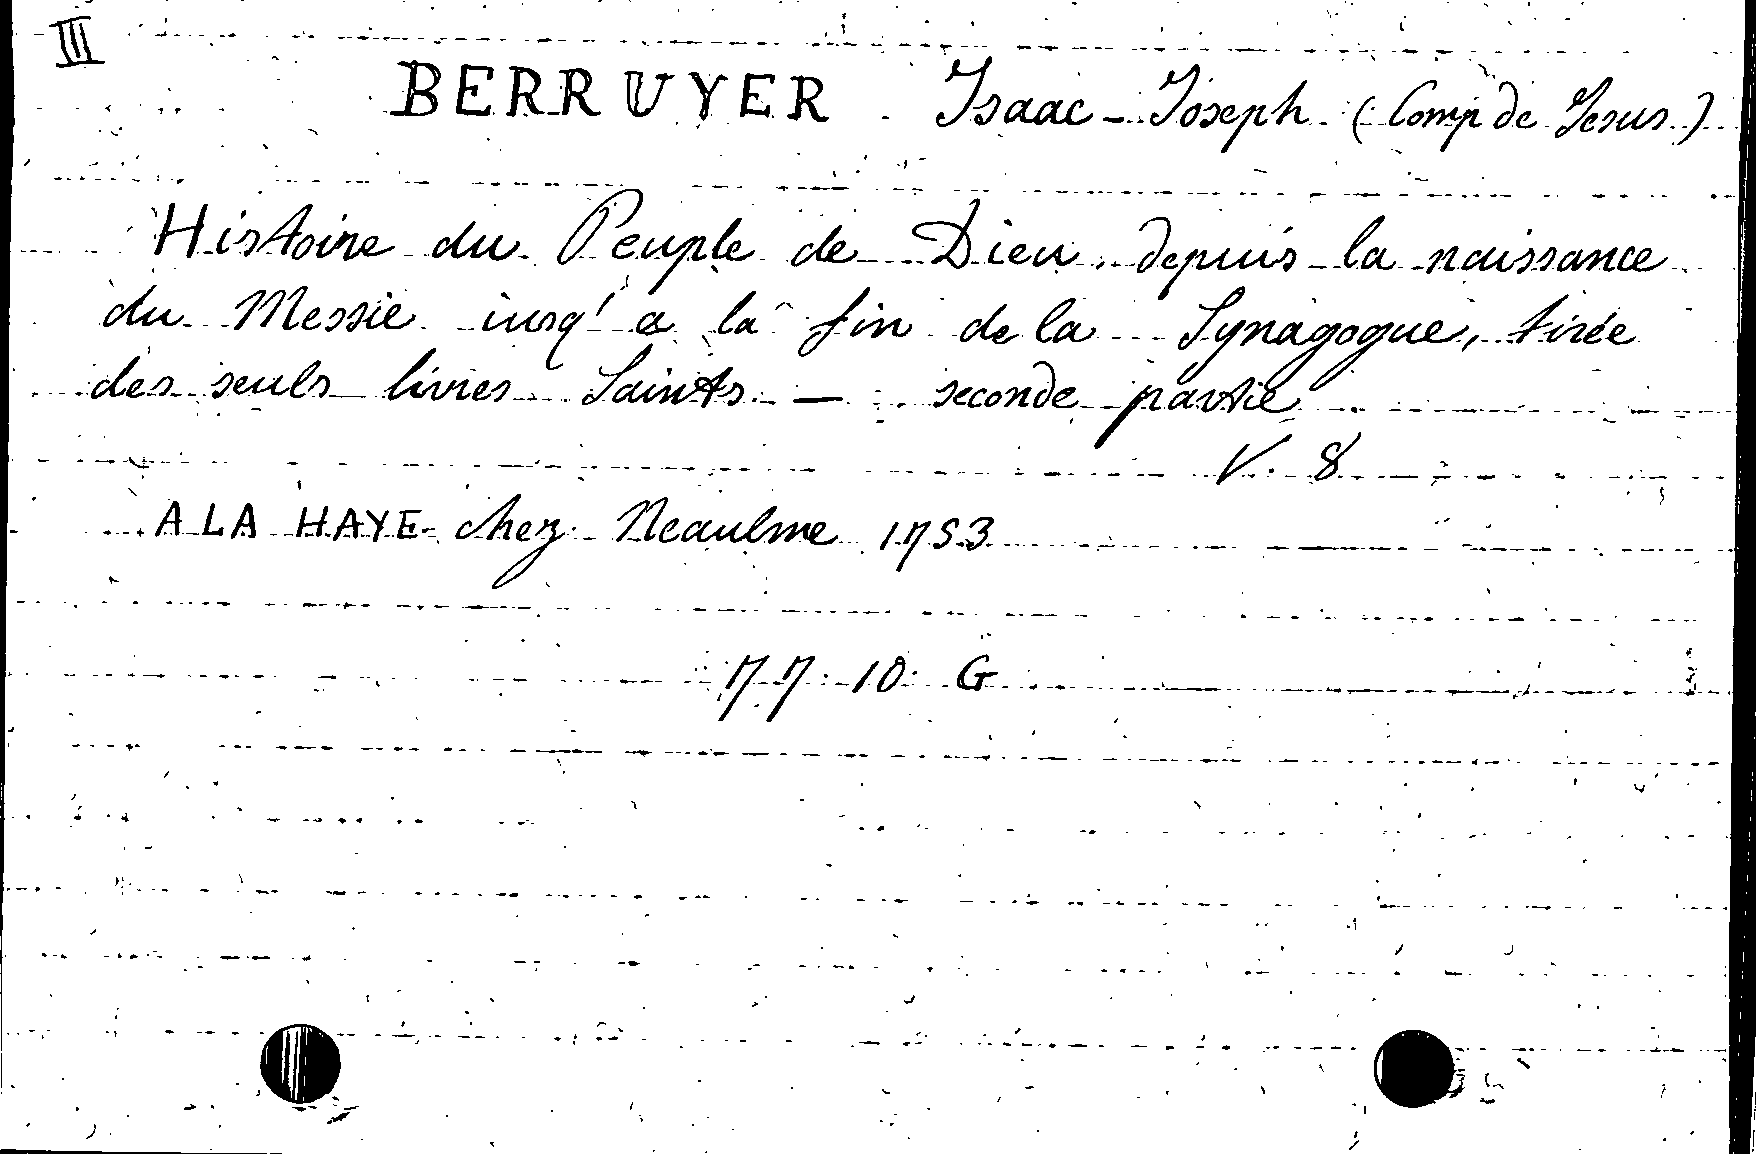 III
BERRUYER Isaac-Joseph (Comp de Jesus)
Histoire du Peuple de Dieu, depuis la naissance
du Messie iusq'a la fin de la Synagogue, tirée
des seuls livres Saints — seconde partie
V. 8
A LA HAYE chez Neaulme 1753
77.10 G